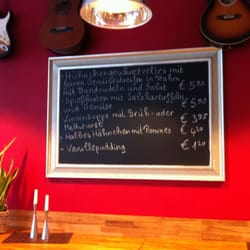 Hühnchengeschnetzeltes mit
feinen Gemüsestreifen in Rahm
mit Bandnudeln und Salat € 5,90
Spießbraten mit Salzkartoffeln
und Gemüse € 5,90
Linsensuppe mit Brüh- oder
Mettwurst € 3,95
Halbes Hähnchen mit Pommes € 4,20
Vanillepudding € 1,20